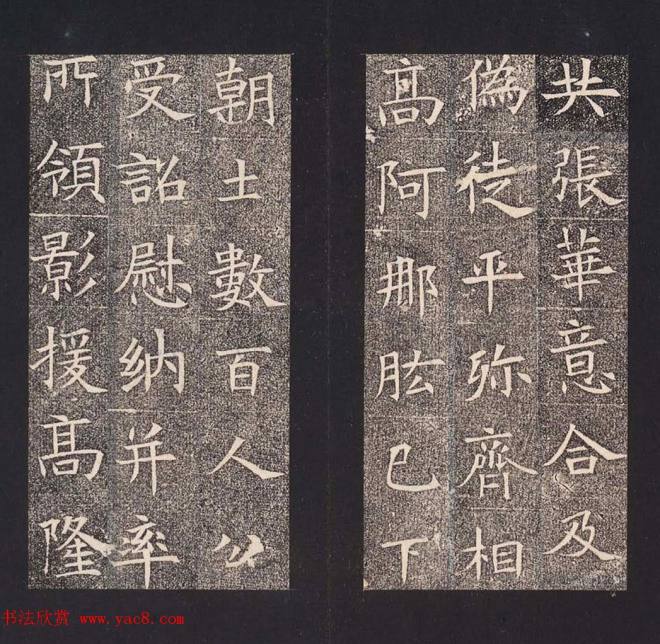 共張華意合及
偽徒平弥齊相
高阿那肱已下
朝士數百人公
受詔慰纳并率
所領影援高隆
书法欣赏 www.yac8.com